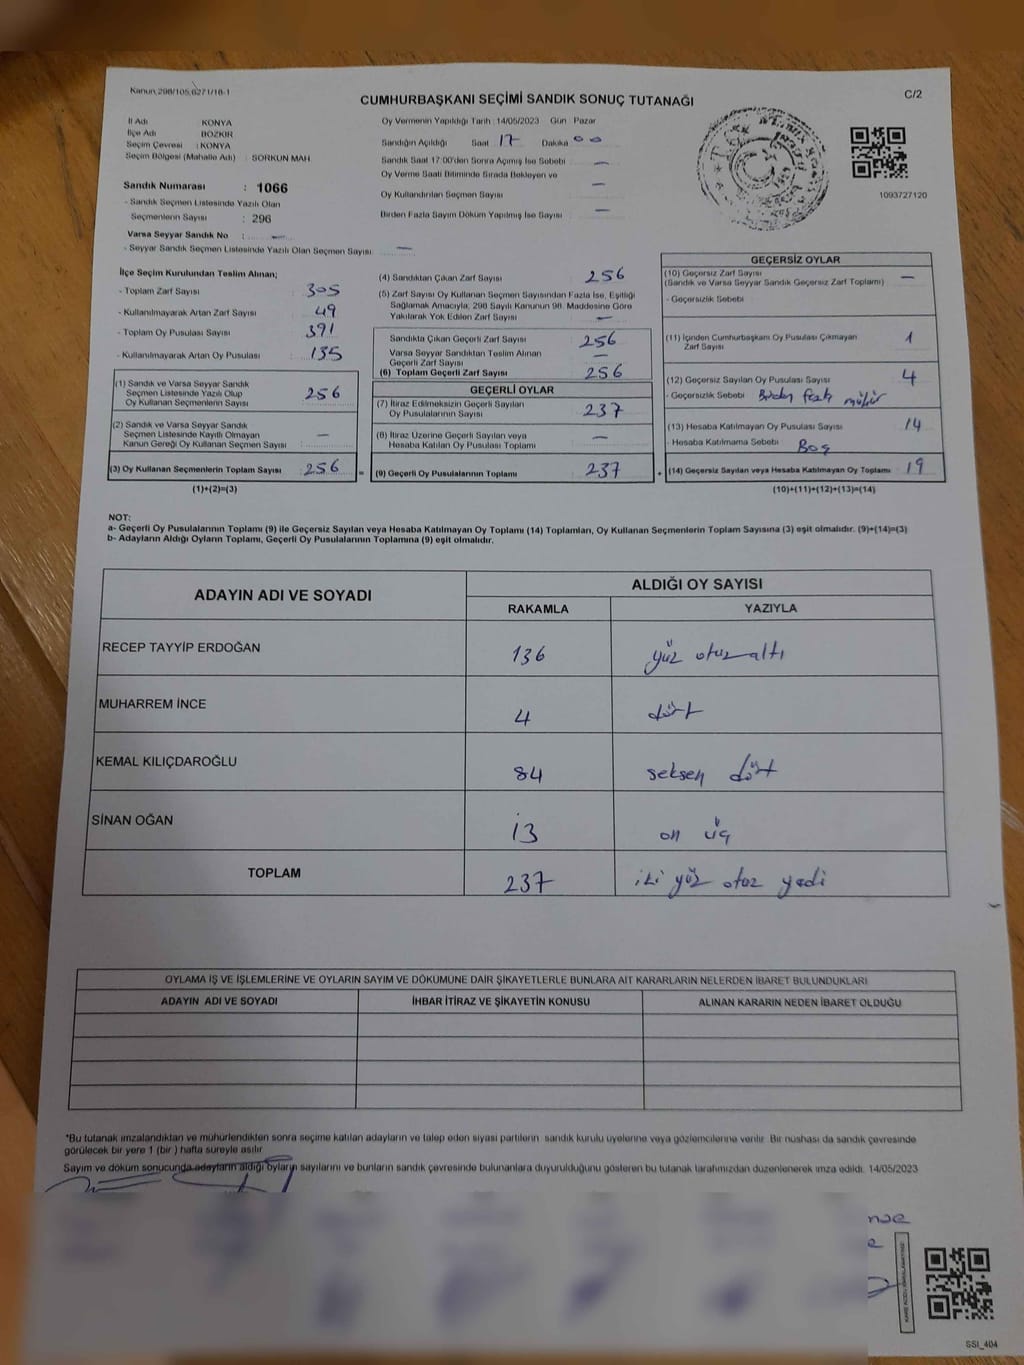 Kanun 298/105,6271/16-1
CUMHURBAŞKANI SEÇİMİ SANDIK SONUÇ TUTANAĞI
C/2
İl Adı KONYA
İlçe Adı BOZKIR
Seçim Çevresi : KONYA
Seçim Bölgesi (Mahalle Adı) : SORKUN MAH.
Sandık Numarası : 1066
- Sandık Seçmen Listesinde Yazılı Olan
Seçmenlerin Sayısı : 296
Varsa Seyyar Sandık No : —
- Seyyar Sandık Seçmen Listesinde Yazılı Olan Seçmen Sayısı —
Oy Vermenin Yapıldığı Tarih : 14/05/2023 Gün : Pazar
Sandığın Açıldığı Saat 17 Dakika 00
Sandık Saat 17:00'den Sonra Açımış İse Sebebi —
Oy Verme Saati Bitiminde Sırada Bekleyen ve
Oy Kullandırılan Seçmen Sayısı —
Birden Fazla Sayım Döküm Yapılmış İse Sayısı —
1093727120
İlçe Seçim Kurulundan Teslim Alınan;
- Toplam Zarf Sayısı : 305
- Kullanılmayarak Artan Zarf Sayısı : 49
- Toplam Oy Pusulası Sayısı : 391
- Kullanılmayarak Artan Oy Pusulası : 135
(1) Sandık ve Varsa Seyyar Sandık
Seçmen Listesinde Yazılı Olup
Oy Kullanan Seçmenlerin Sayısı : 256
(2) Sandık ve Varsa Seyyar Sandık
Seçmen Listesinde Kayıtlı Olmayan
Kanun Gereği Oy Kullanan Seçmen Sayısı : —
(3) Oy Kullanan Seçmenlerin Toplam Sayısı : 256
(1)+(2)=(3)
(4) Sandıktan Çıkan Zarf Sayısı : 256
(5) Zarf Sayısı Oy Kullanan Seçmen Sayısından Fazla İse, Eşitliği
Sağlamak Amacıyla, 298 Sayılı Kanunun 98. Maddesine Göre
Yakılarak Yok Edilen Zarf Sayısı : —
Sandıkta Çıkan Geçerli Zarf Sayısı : 256
Varsa Seyyar Sandıktan Teslim Alınan
Geçerli Zarf Sayısı : —
(6) Toplam Geçerli Zarf Sayısı : 256
GEÇERLİ OYLAR
(7) İtiraz Edilmeksizin Geçerli Sayılan
Oy Pusulalarının Sayısı : 237
(8) İtiraz Üzerine Geçerli Sayılan veya
Hesaba Katılan Oy Pusulalarının Toplamı : —
= (9) Geçerli Oy Pusulalarının Toplamı : 237
GEÇERSİZ OYLAR
(10) Geçersiz Zarf Sayısı : —
(Sandık ve Varsa Seyyar Sandık Geçersiz Zarf Toplamı)
- Geçersizlik Sebebi
(11) İçinden Cumhurbaşkanı Oy Pusulası Çıkmayan
Zarf Sayısı : 1
(12) Geçersiz Sayılan Oy Pusulası Sayısı : 4
- Geçersizlik Sebebi : Birden fazla mühür
(13) Hesaba Katılmayan Oy Pusulası Sayısı : 14
- Hesaba Katılmama Sebebi : Boş
+ (14) Geçersiz Sayılan veya Hesaba Katılmayan Oy Toplamı : 19
(10)+(11)+(12)+(13)=(14)
NOT:
a- Geçerli Oy Pusulalarının Toplamı (9) ile Geçersiz Sayılan veya Hesaba Katılmayan Oy Toplamı (14) Toplamları, Oy Kullanan Seçmenlerin Toplam Sayısına (3) eşit olmalıdır. (9)+(14)=(3)
b- Adayların Aldığı Oyların Toplamı, Geçerli Oy Pusulalarının Toplamına (9) eşit olmalıdır.
ADAYIN ADI VE SOYADI ALDIĞI OY SAYISI
RAKAMLA YAZIYLA
RECEP TAYYİP ERDOĞAN 136 yüz otuz altı
MUHARREM İNCE 4 dört
KEMAL KILIÇDAROĞLU 84 seksen dört
SİNAN OĞAN 13 on üç
TOPLAM 237 iki yüz otuz yedi
OYLAMA İŞ VE İŞLEMLERİNE VE OYLARIN SAYIM VE DÖKÜMÜNE DAİR ŞİKAYETLERLE BUNLARA AİT KARARLARIN NELERDEN İBARET BULUNDUKLARI
ADAYIN ADI VE SOYADI İHBAR İTİRAZ VE ŞİKAYETİN KONUSU ALINAN KARARIN NEDEN İBARET OLDUĞU
*Bu tutanak imzalandıktan ve mühürlendikten sonra seçime katılan adayların ve talep eden siyasi partilerin sandık kurulu üyelerine veya gözlemcilerine verilir. Bir nüshası da sandık çevresinde
görülecek bir yere 1 (bir ) hafta süreyle asılır.
Sayım ve döküm sonucunda adayların aldığı oyların sayılarını ve bunların sandık çevresinde bulunanlara duyurulduğunu gösteren bu tutanak tarafımızdan düzenlenerek imza edildi. 14/05/2023
SSI_404